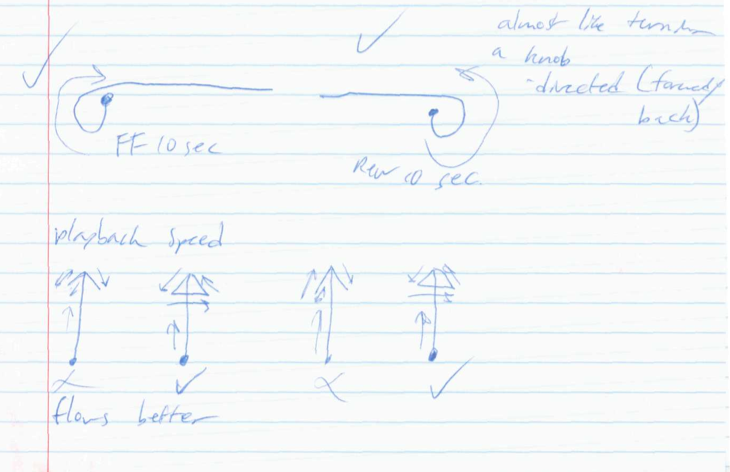 almost like turning
a knob
-directed (forward/
back)
FF 10 sec
Rew 10 sec.
playback speed
flows better